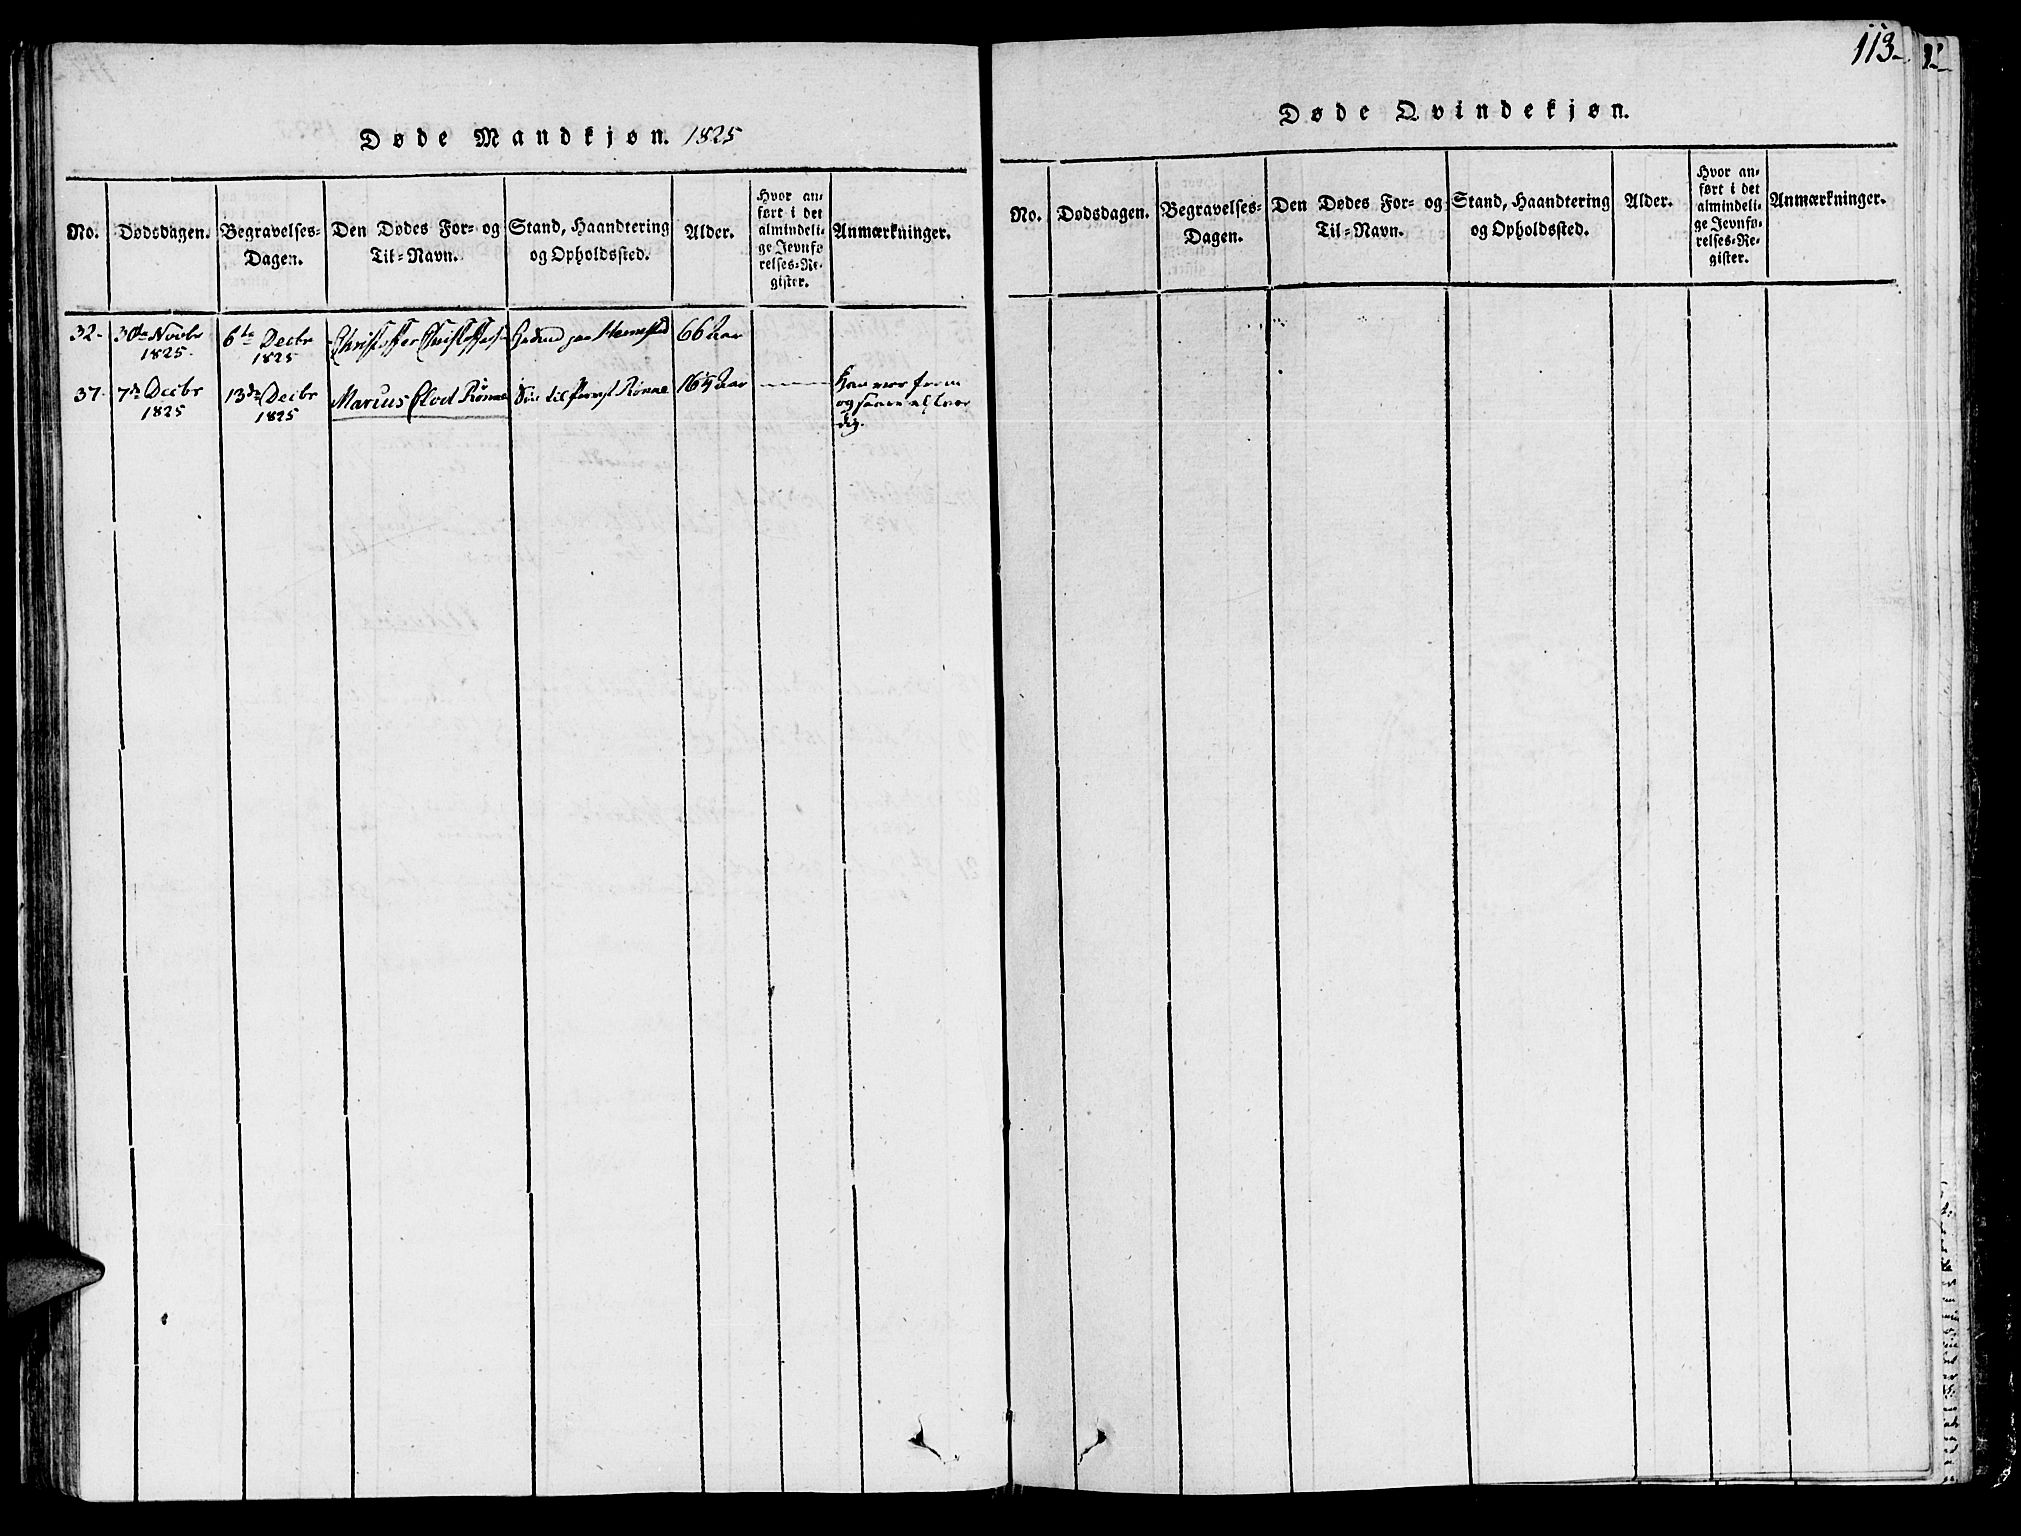 113
Døde Mandkjøn. 1825
No.
Dødsdagen.
Begravelses-
Dagen.
Den Dødes For- og
Til-Navn.
Stand, Haandtering
og Opholdssted.
Alder.
Hvor an-
ført i det
almindeli-
ge Jevnfø-
relses-Re-
gister.
Anmærkninger.
32- 30te Novbr
1825.
6te Decbr
1825
Christoffer 66 Aar
37- 7de Decbr
1825
13de Decbr
1825
Marius Rönne
Sön til Rönne
Aar
Han var from
Døde Qvindekjøn.
No.
Dødsdagen.
Begravelses-
Dagen.
Den Dødes For- og
Til-Navn.
Stand, Haandtering
og Opholdssted.
Alder.
Hvor an-
ført i det
almindeli-
ge Jevnfø-
relses-Re-
gister.
Anmærkninger.